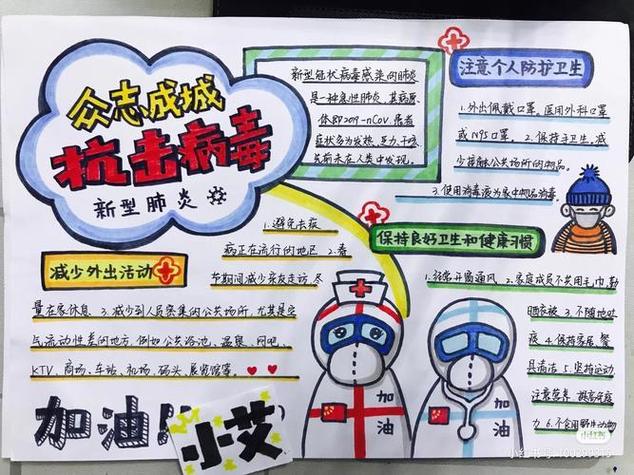 众志成城
抗击病毒
新型肺炎
新型冠状病毒感染的肺炎
是一种急性肺炎,其病原
体即2019-nCoV.患者
症状多为发热、乏力、干咳
先前未在人类中发现。
注意个人防护卫生
1.外出佩戴口罩,医用外科口罩
或N95口罩。2.保持手卫生,减
少接触公共场所的物品。
3.使用消毒液为家中物品消毒。
减少外出活动
1.避免去疫
病正在流行的地区 2.春
节期间减少亲友走访,尽
量在家休息。3.减少到人员密集的公共场所,尤其是空
气流动性差的地方,例如公共浴池、温泉、网吧、
KTV、商场、车站、机场、码头、展览馆等。
保持良好卫生和健康习惯
1.经常开窗通风 2.家庭成员不共用毛巾,勤
晒衣被 3.不随地吐
痰 4.保持家居、餐
具清洁 5.坚持运动
注意营养、提高免疫
力 6.不食用野生动物
加油
加油
加油!!
小艾
小红书